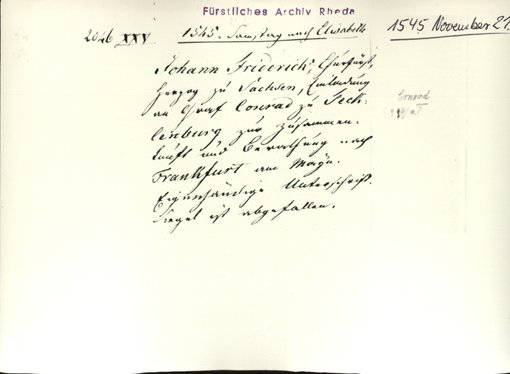 Fürstliches Archiv Rheda
2046 XXV 1545. Samstag nach Elisabeth
1545 November 21.
Johann Friderich, Churfürst,
Herzog zu Sachsen, Einladung
an Graf Conrad zu Teck-
lenburg zur Zusammen-
kunft und Berathung nach
Frankfurt am Mayn.
Eigenhändige Unterschrift.
Siegel ist abgefallen.
Conrad